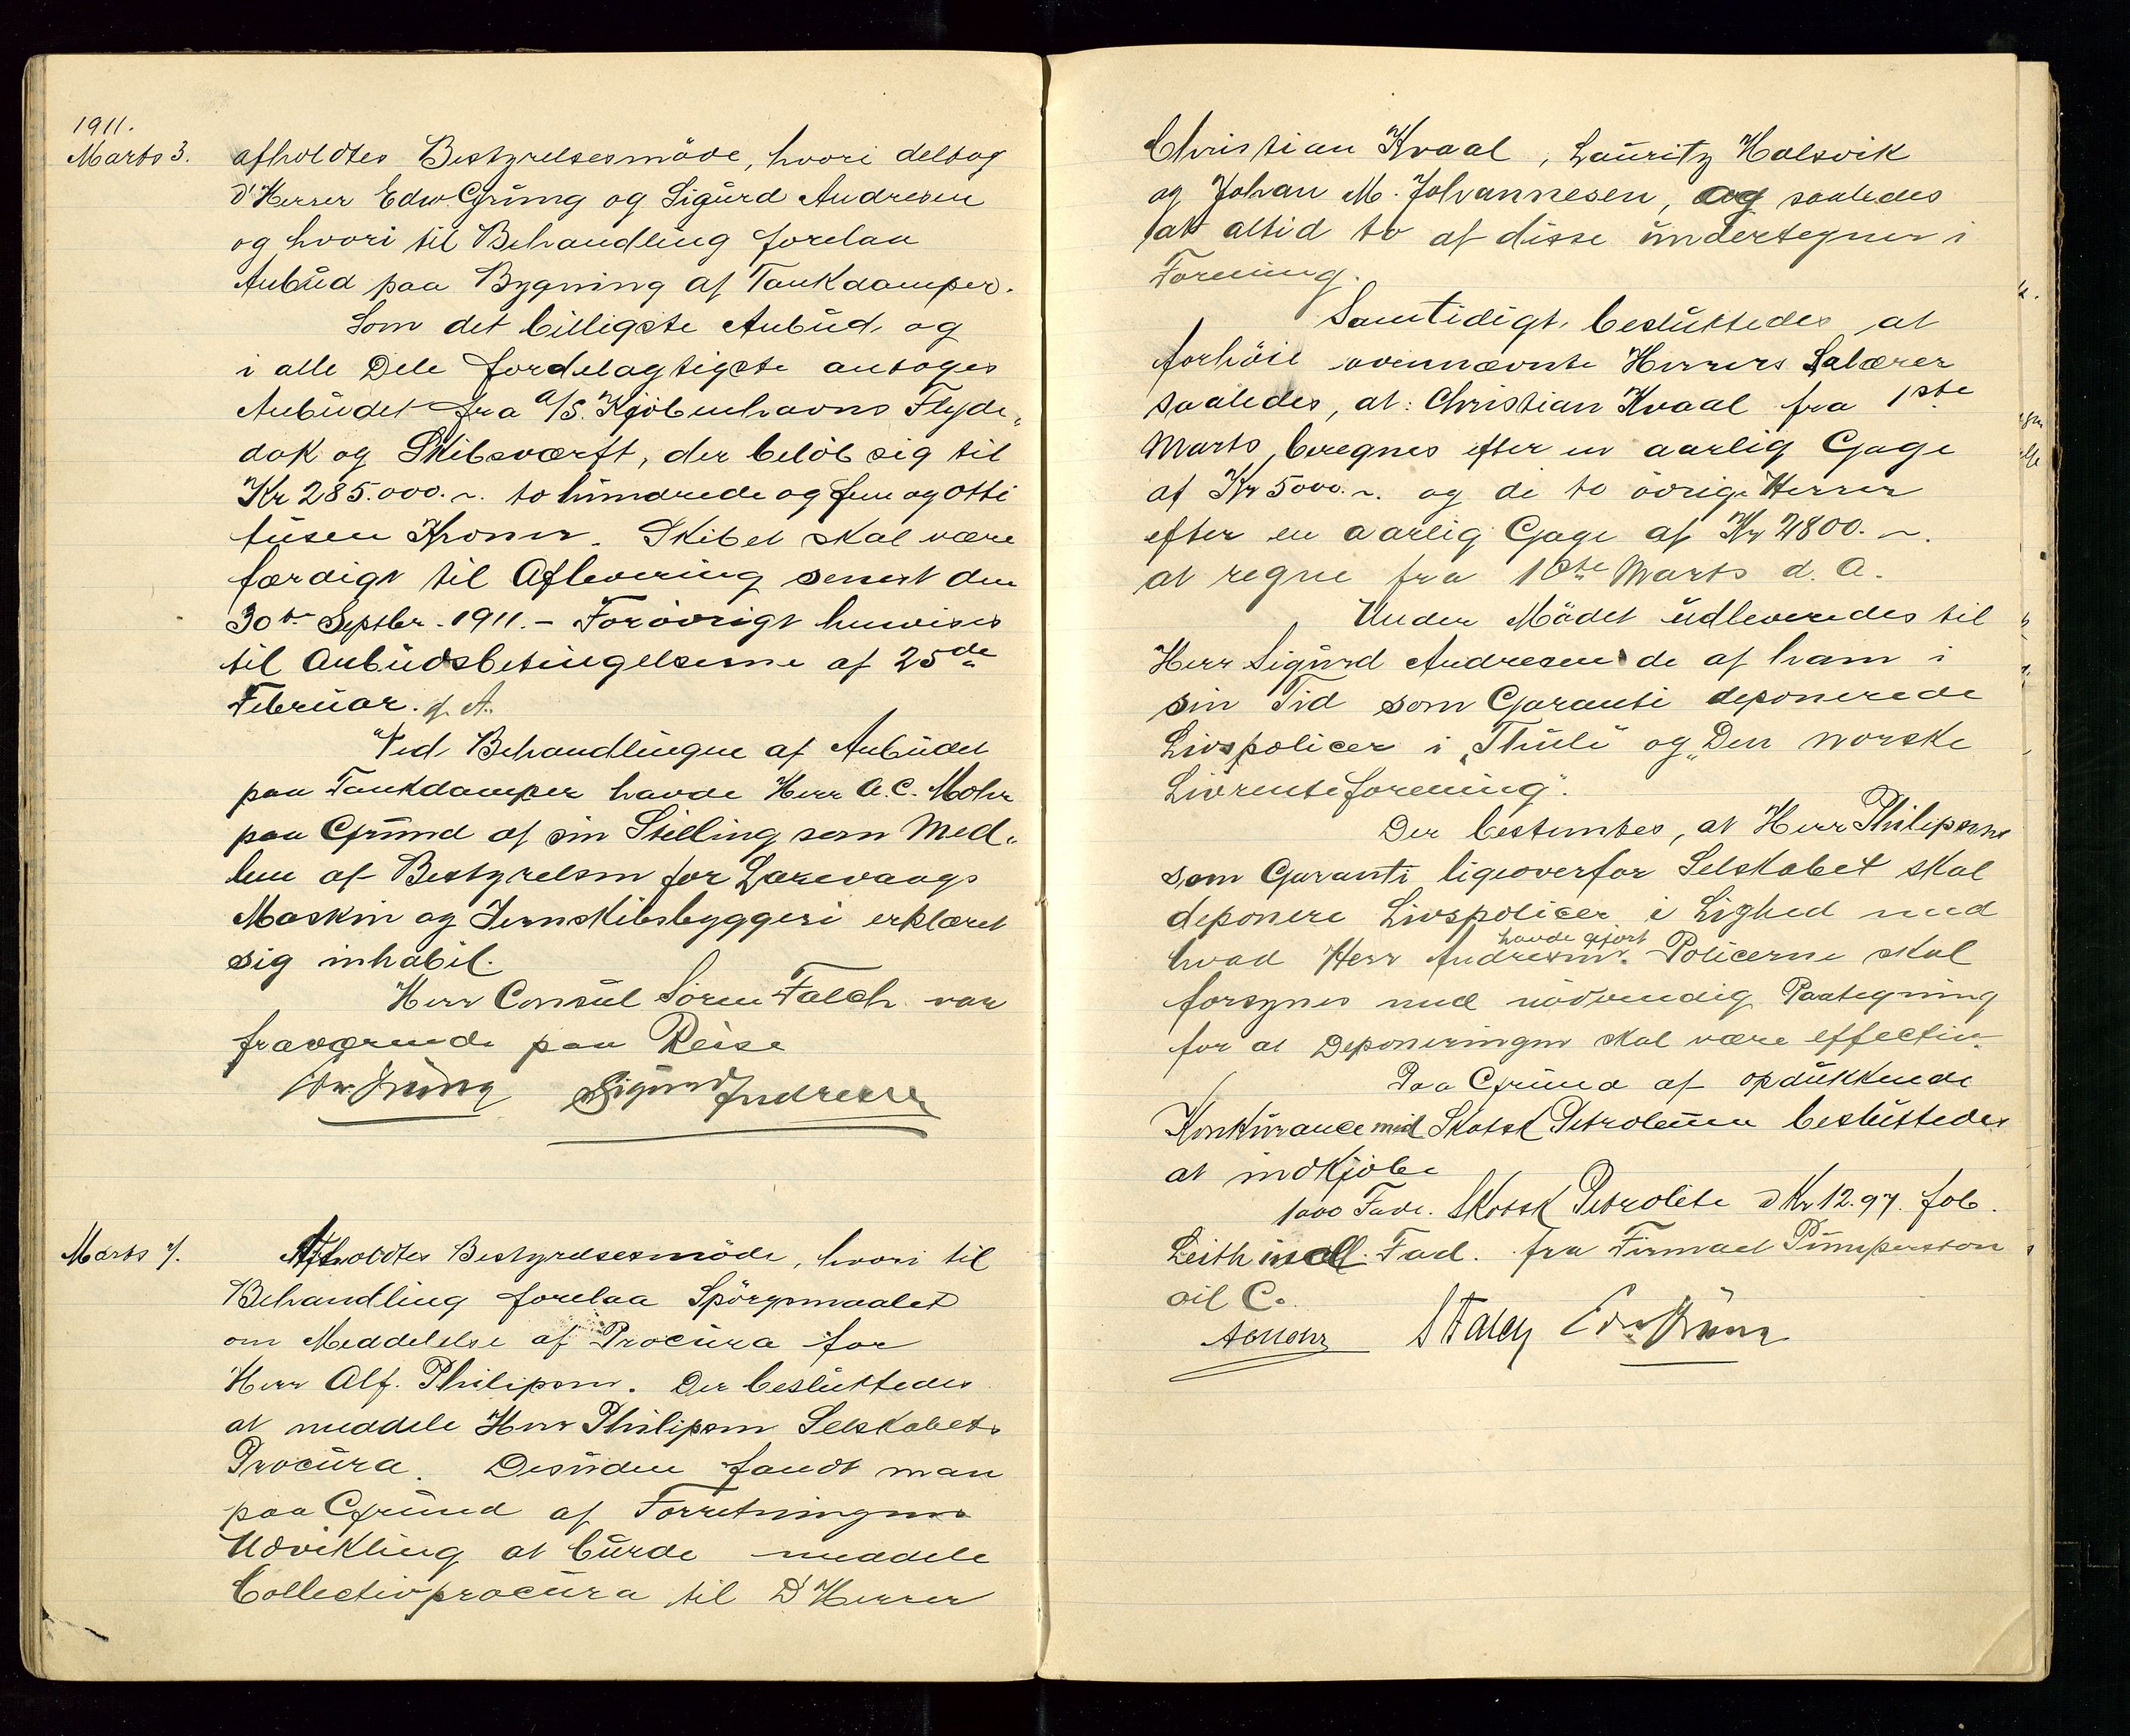 1911.
Marts 3. afholdtes Bestyrelsesmöde, hvori deltog
D'Herrer Edw Grüng og Sigurd Andresen
og hvori til Behandling forelaa
Anbud paa Bygning af Tankdamper.
Som det billigste Anbud og
i alle Dele fordelagtigste antoges
Anbudet fra A/S. Kjöbenhavns Flyde„
dok og Skibsværft, der belöb sig til
Kr 285.000.~. to hundrede og fem og otti
tusen Kroner. Skibet skal være
færdigt til Aflevering senest den
30te Septbr. 1911. – Forövrigt henvises
til Anbudsbetingelserne af 25de
Februar. d. A.
Ved Behandlingen af Anbudet
paa Tankdamper havde Herr A.C. Mohr
paa Grund af sin Stilling som Med„
lem af Bestyrelsen for Laxevaags
Maskin og Jernskibsbyggeri erklæret
sig inhabil.
Herr Consul Sören Falch var
fraværende paa Reise
Edw Grüng Sigurd Andresen
Marts 7. Afholdtes Bestyrelsesmöde, hvori til
Behandling forelaa Spörgsmaalet
om Meddelelse af Procura for
Herr Alf. Philipson. Der besluttedes
at meddele Herr Philipson Selskabets
Procura. Desuden fandt man
paa Grund af Forretningens
Udvikling at burde meddele
Collectivprocura til D'Herrer
Christian Kvaal, Lauritz Halsvik
og Johan M. Johannesen, og saaledes
at altid to af disse undertegner i
Forening.
Samtidigt besluttedes at
forhöie ovennævnte Herrers Salærer
saaledes, at: Christian Kvaal fra 1ste
Marts beregnes efter en aarlig Gage
af Kr 5000.~. og de to övrige Herrer
efter en aarlig Gage af Kr 2800.~.
at regne fra 1ste Marts d. A.
Under Mödet udleveredes til
Herr Sigurd Andresen de af ham i
sin Tid som Garanti deponerede
Livspolicer i „Thule" og „Den norske
Livrenteforening".
Der bestemtes, at Herr Philipson
som Garanti ligeoverfor Selskabet skal
deponere Livspolicer i Lighed med
havde gjort
hvad Herr Andresen. Policerne skal
forsynes med nödvendig Paategning
for at Deponeringen skal være effectiv.
Paa Grund af opdukkende
Konkurance med Skotsk Petroleum besluttedes
at indkjöbe
1000 Fade. Skotsk Petrolite à Kr 12.97. fob.
Leith incll. Fad. fra Firmaet Pumperston
oil Co.
ACMohr S Falch Edw Grüng